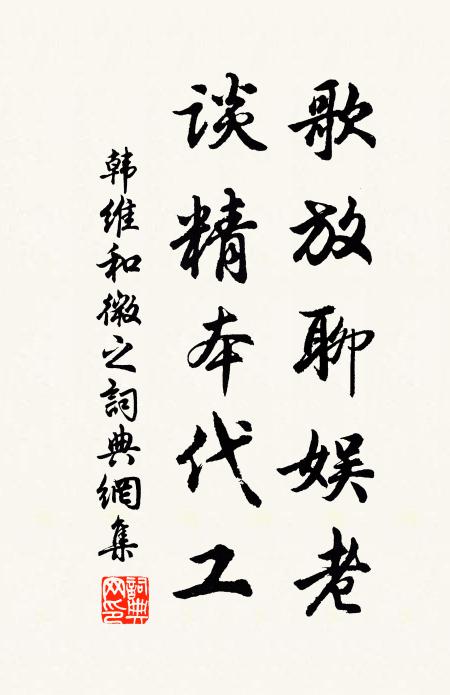 歌放聊娱老
谈精本代工
韩维和微之詞典網集
詞典网印